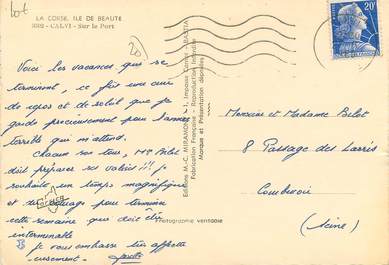 LA CORSE, ILE DE BEAUTÉ
3082 - CALVI - Sur le Port
20
Voici les vacances qui se
terminent, ce fut une cure
de repos et de soleil que je
garde précieusement pour l'année
terrible qui m'attend.
Chacun son tour, Mr Bilot
doit préparer ses valises!!! Je
souhaite un temps magnifique
et un pour terminer
cette semaine que doit être
interminable
Je vous embrasse très affectu
eusement.
Editions M.-C. MIRAMONT - Impasse Corse - BASTIA
Fabrication Française - Reproduction Interdite
Marque et Présentation déposées
Photographie véritable
20F
Monsieur et Madame Bilot
8 Passage des Larris
Courbevoie
(Seine)